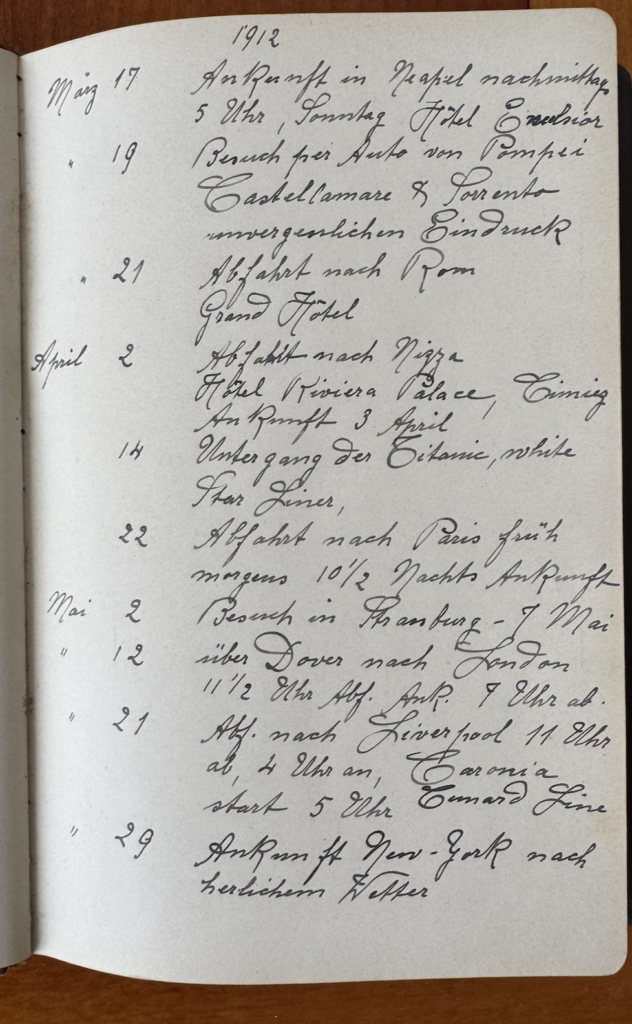 1912
März 17 Ankunft in Neapel nachmittags
5 Uhr, Sonntag Hôtel Excelsior
" 19 Besuch per Auto von Pompei
Castellamare & Sorrento
unvergesslichen Eindruck
" 21 Abfahrt nach Rom
Grand Hôtel
April 2 Abfahrt nach Nizza
Hôtel Riviera Palace, Cimiez
Ankunft 3 April
14 Untergang der Titanic, white
Star Liner,
22 Abfahrt nach Paris früh
morgens 10 1/2 Nachts Ankunft
Mai 2 Besuch in Strassburg - 7 Mai
" 12 über Dover nach London
11 1/2 Uhr Abf. Ank. 7 Uhr ab.
" 21 Abf. nach Liverpool 11 Uhr
ab, 4 Uhr an, Caronia
start 5 Uhr Cunard Line
" 29 Ankunft New-York nach
herlichem Wetter